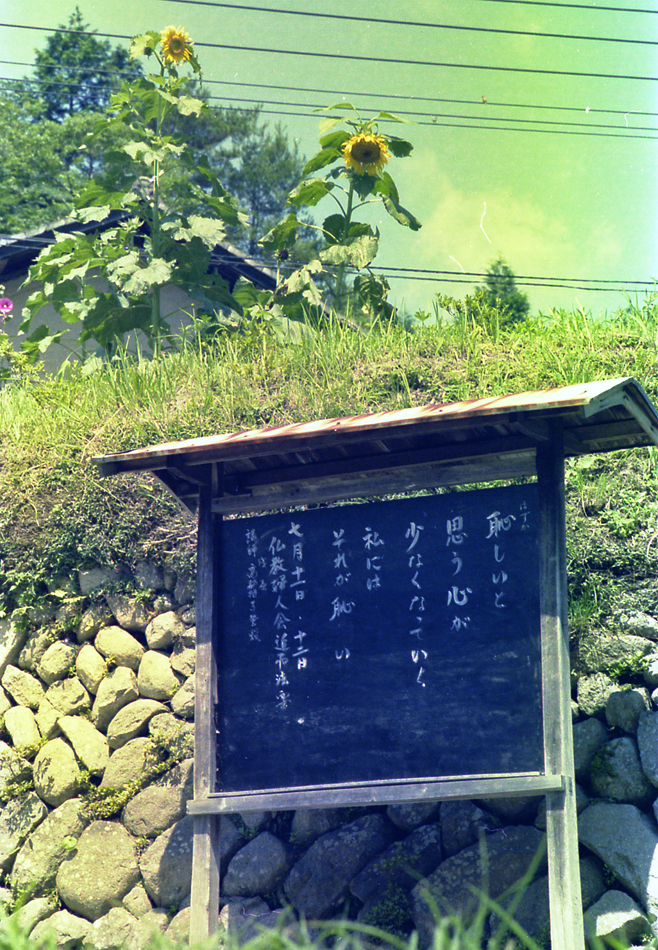 恥しいと
思う心が
少なくなっていく
私には
それが恥しい
七月十一日・十二日
仏教婦人会追弔法要
講師